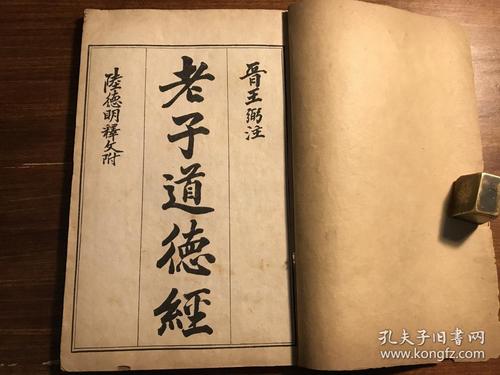 晋王弼注
老子道德經
陸德明釋文附
孔夫子旧书网
www.kongfz.com